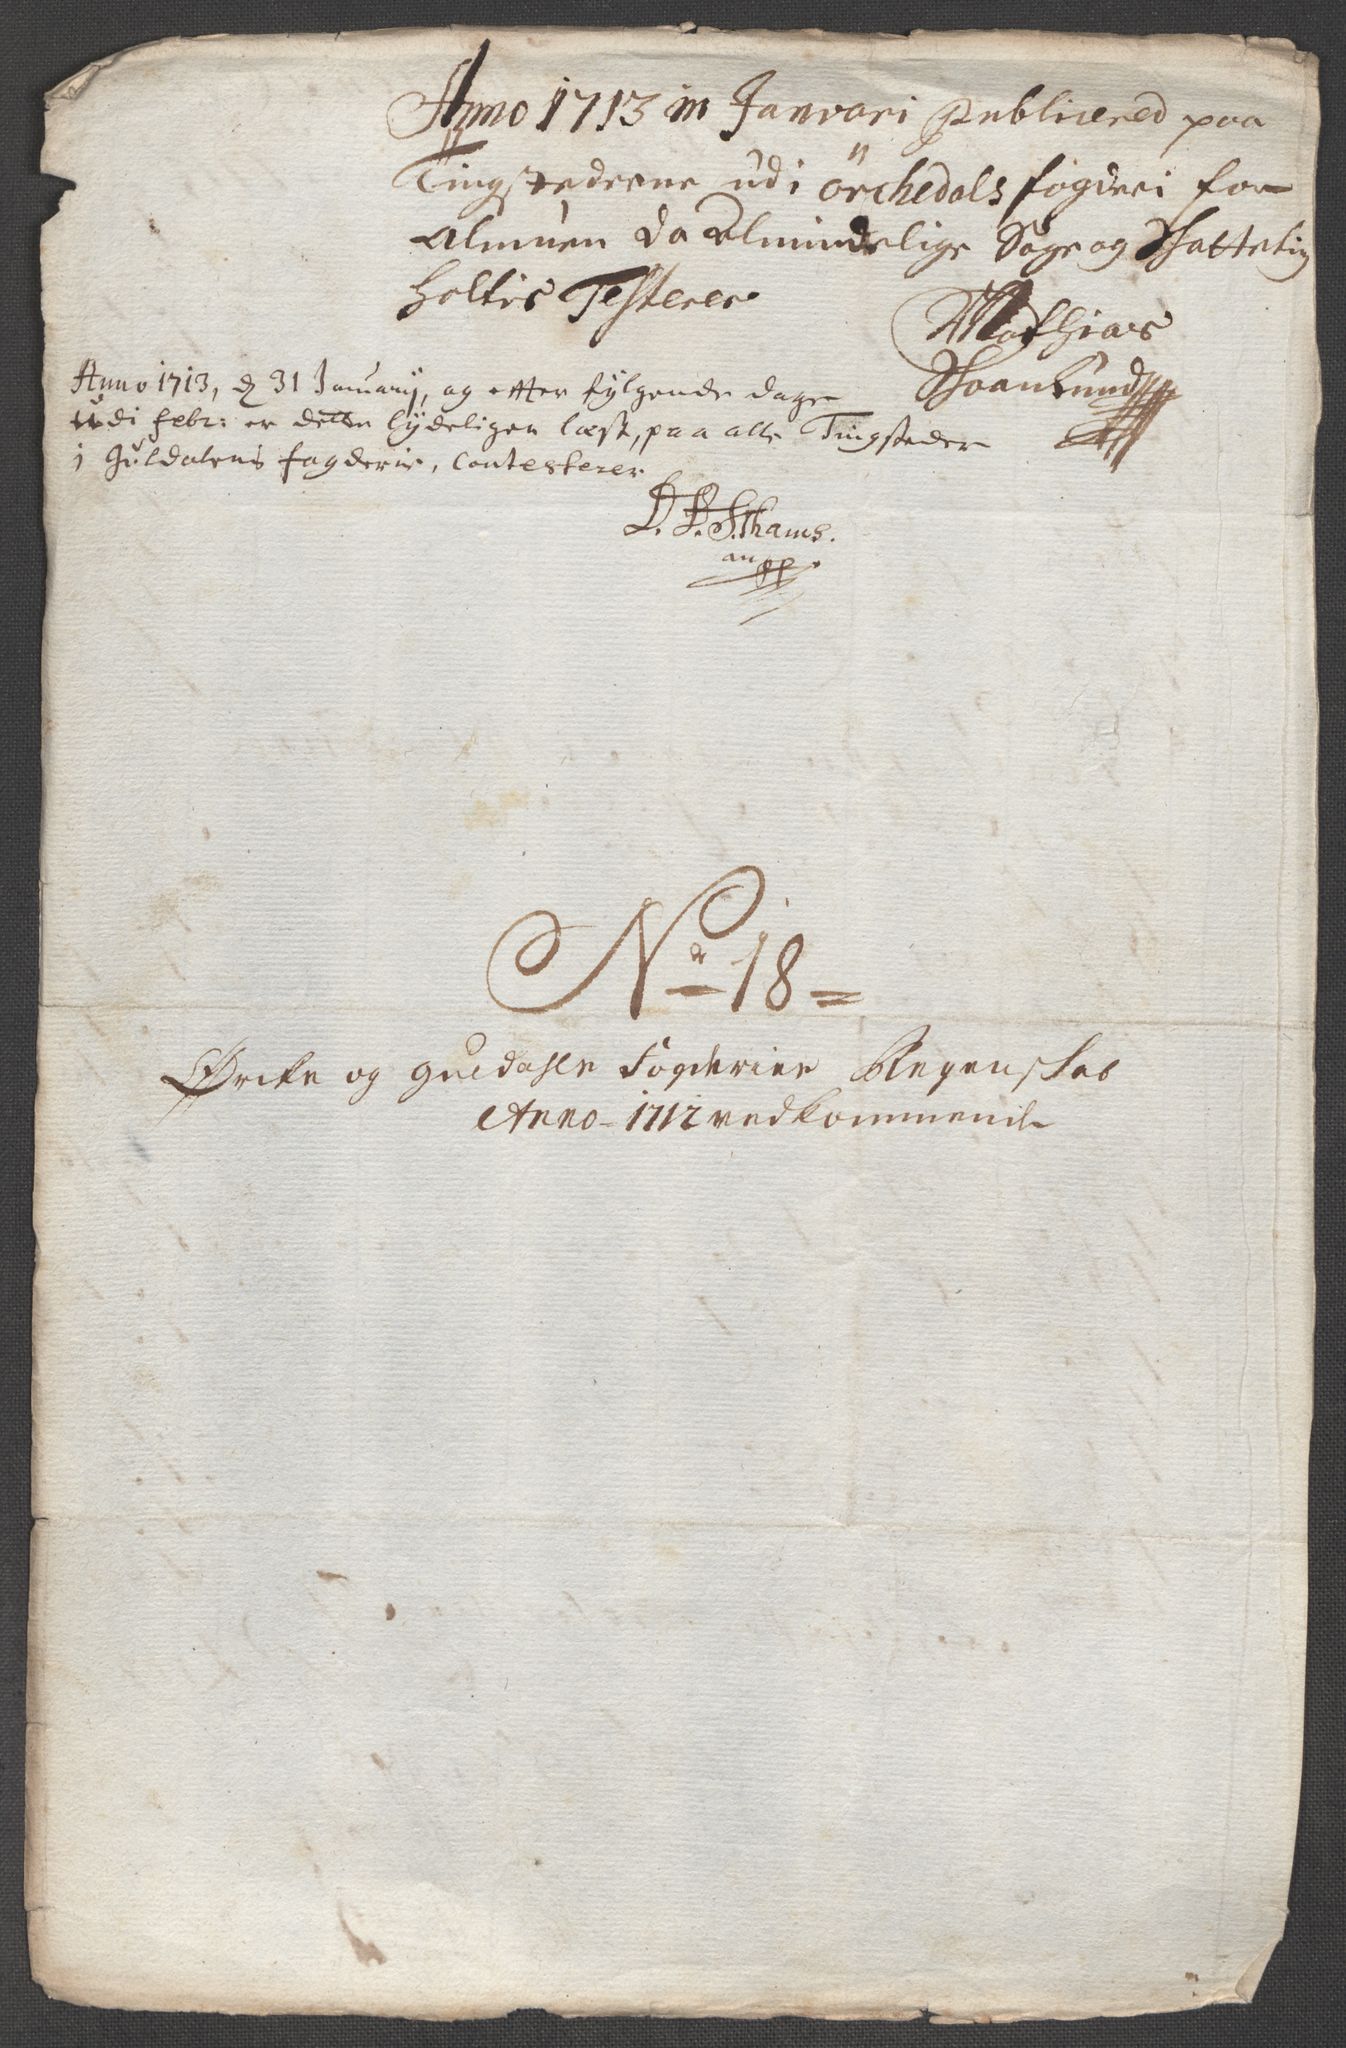 Anno 1713 in Januari publicered paa
Tingstederne udi örchedals fogderi for
Almuen da Almindelige Sage og Skatteting
holtis Testerer
Mathias
Skaanlund
Anno 1713, d 31 January, og efter fylgende dage
udi febr: er dette lydeligen læst, paa alle Tingsteder
i Guldalens fogderie, Contesterer
L. P. S. Thams.
No 18
Ørcke og guldahls Fogderiers Regenskab
Anno 1712 vedkommende